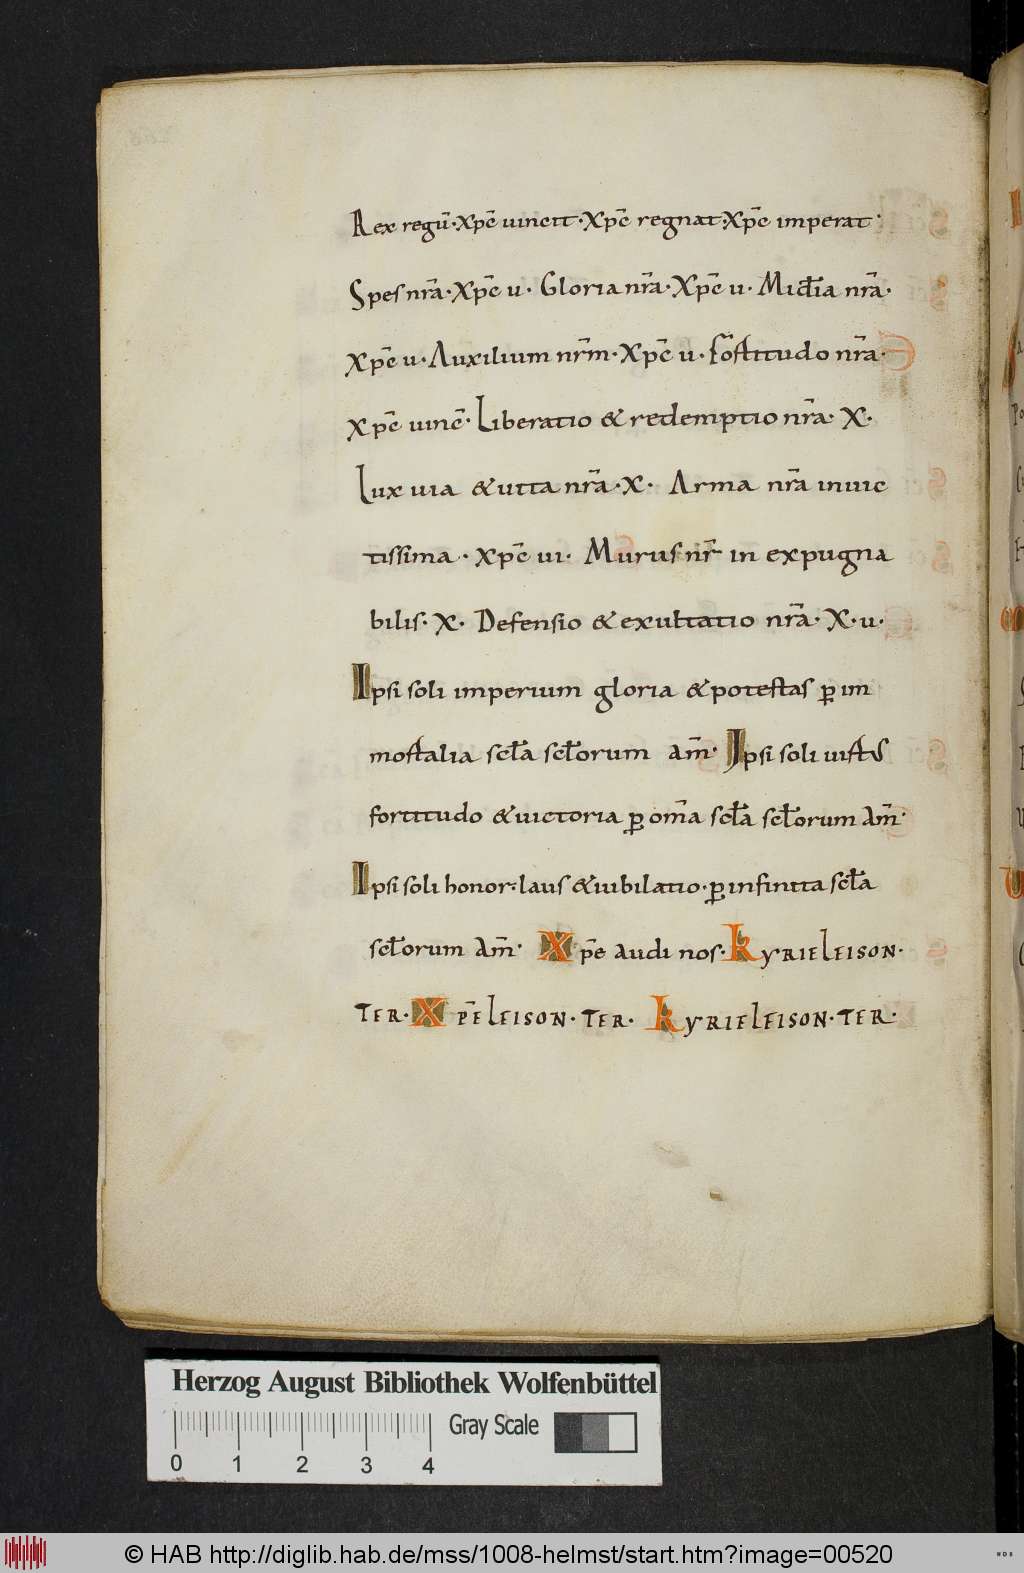 Rex regū·xp̄c uincit·Xp̄c regnat·Xp̄c imperat·
Spes nr̄a·Xp̄c u· Gloria nr̄a·Xp̄c u· Micđia nr̄a·
xp̄c u·Auxilium nr̄m·Xp̄c u· fortitudo nr̄a·
xp̄c uinc̄· Liberatio & redemptio nr̄a· X·
Lux uia & uita nr̄a·X· Arma nr̄a inuic
tissima· xp̄c ui· Murus nr̄ in expugna
bilis· X· Defensio & exultatio nr̄a· X·u·
Ipsi soli imperium gloria & potestas ꝑ im
mortalia scła scłorum am̄· Ipsi soli uirtus
fortitudo & uictoria ꝑ om̄a scła scłorum Am̄·
Ipsi soli honor·laus & iubilatio·ꝑ infinita scła
scłorum Am̄· Xp̄e audi nos·kyrieleison·
TER·Xp̄eleison·TER· kyrieleison·TER·
Herzog August Bibliothek Wolfenbüttel
Gray Scale
0 1 2 3 4
© HAB http://diglib.hab.de/mss/1008-helmst/start.htm?image=00520